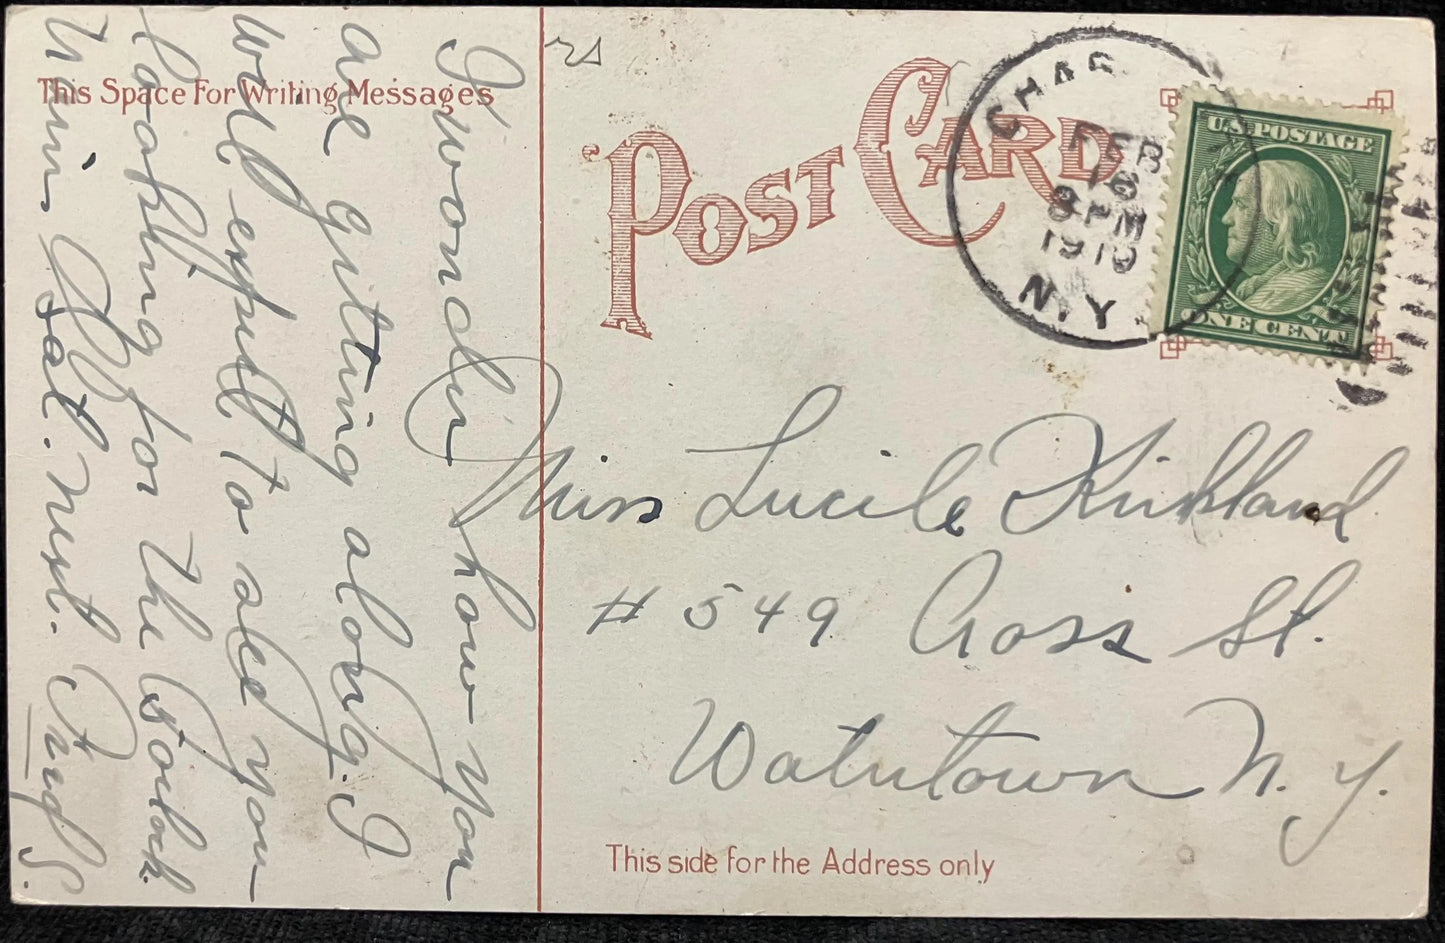 This Space For Writing Messages
I wonder how you
are getting along. I
would expect to see you
looking for the 5 o'clock
train Sat. next.
POST CARD
CHAR
FEB
16
8-PM
1910
N.Y.
U.S. POSTAGE
ONE CENT
Miss Lucile Kirkland
# 549 Cross St.
Watertown N.Y.
This side for the Address only